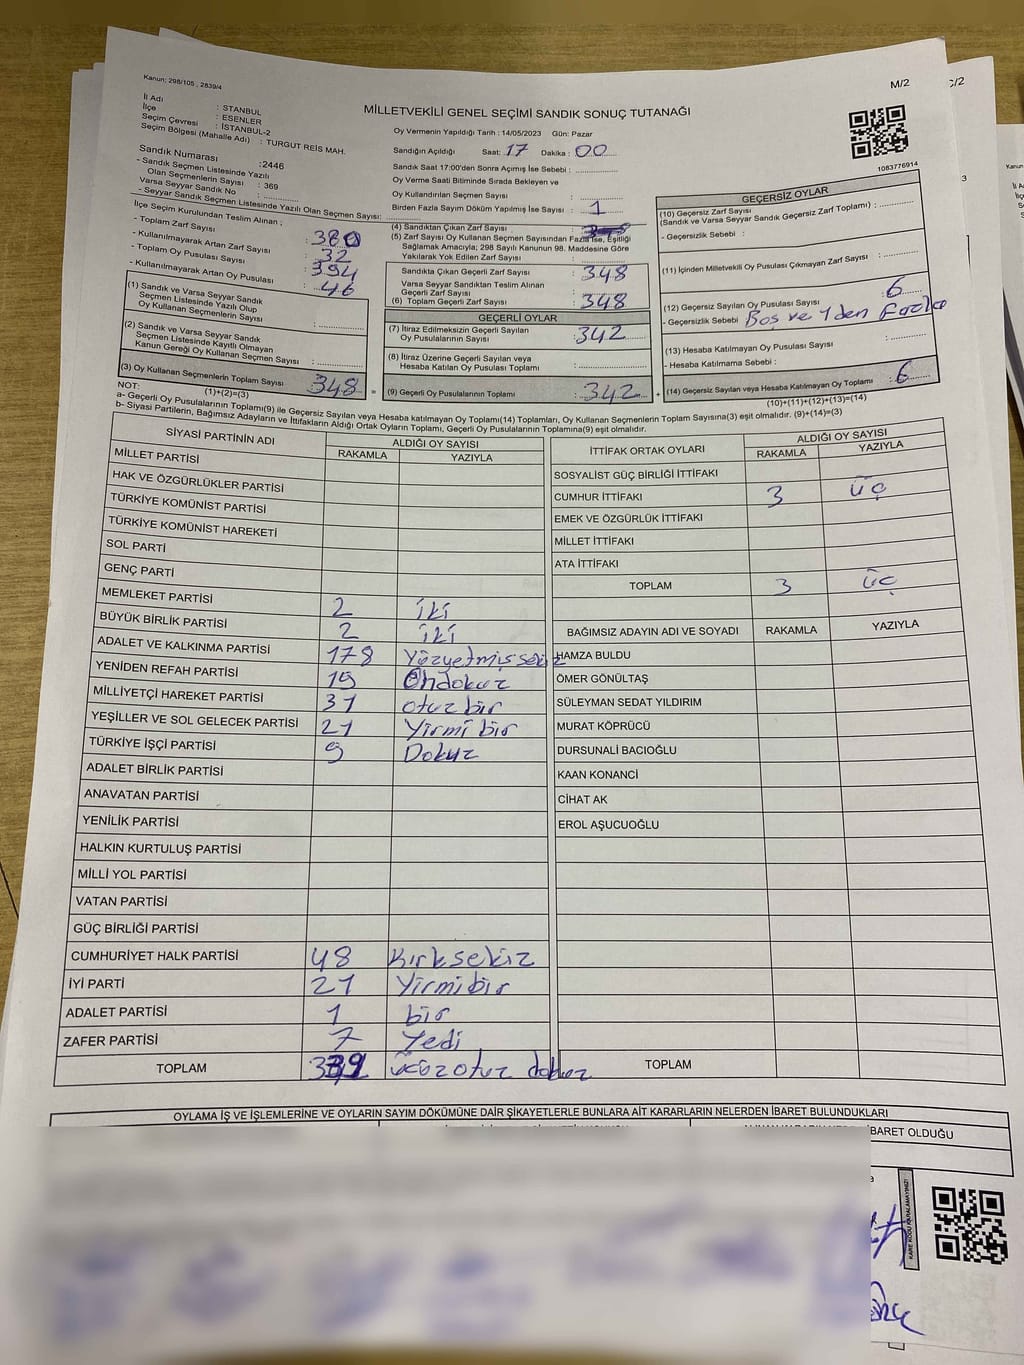 Kanun: 298/105 , 2839/4
M/2
C/2
MİLLETVEKİLİ GENEL SEÇİMİ SANDIK SONUÇ TUTANAĞI
İl Adı : STANBUL
İlçe : ESENLER
Seçim Çevresi : İSTANBUL-2
Seçim Bölgesi (Mahalle Adı) : TURGUT REİS MAH.
Oy Vermenin Yapıldığı Tarih : 14/05/2023 Gün: Pazar
Sandığın Açıldığı Saat: 17 Dakika : 00
Sandık Saat 17:00'den Sonra Açımış İse Sebebi :
Oy Verme Saati Bitiminde Sırada Bekleyen ve
Oy Kullandırılan Seçmen Sayısı :
Birden Fazla Sayım Döküm Yapılmış İse Sayısı : 1
1083776914
Sandık Numarası :2446
- Sandık Seçmen Listesinde Yazılı
Olan Seçmenlerin Sayısı : 369
Varsa Seyyar Sandık No :
- Seyyar Sandık Seçmen Listesinde Yazılı Olan Seçmen Sayısı:
İlçe Seçim Kurulundan Teslim Alınan ;
- Toplam Zarf Sayısı : 380
- Kullanılmayarak Artan Zarf Sayısı : 32
- Toplam Oy Pusulası Sayısı : 394
- Kullanılmayarak Artan Oy Pusulası : 46
(1) Sandık ve Varsa Seyyar Sandık
Seçmen Listesinde Yazılı Olup
Oy Kullanan Seçmenlerin Sayısı :
(2) Sandık ve Varsa Seyyar Sandık
Seçmen Listesinde Kayıtlı Olmayan
Kanun Gereği Oy Kullanan Seçmen Sayısı :
(3) Oy Kullanan Seçmenlerin Toplam Sayısı : 348 =
(1)+(2)=(3)
(4) Sandıktan Çıkan Zarf Sayısı :
(5) Zarf Sayısı Oy Kullanan Seçmen Sayısından Fazla İse, Eşitliği
Sağlamak Amacıyla; 298 Sayılı Kanunun 98. Maddesine Göre
Yakılarak Yok Edilen Zarf Sayısı :
Sandıkta Çıkan Geçerli Zarf Sayısı : 348
Varsa Seyyar Sandıktan Teslim Alınan
Geçerli Zarf Sayısı :
(6) Toplam Geçerli Zarf Sayısı : 348
GEÇERLİ OYLAR
(7) İtiraz Edilmeksizin Geçerli Sayılan
Oy Pusulalarının Sayısı : 342
(8) İtiraz Üzerine Geçerli Sayılan veya
Hesaba Katılan Oy Pusulası Toplamı :
(9) Geçerli Oy Pusulalarının Toplamı : 342 +
GEÇERSİZ OYLAR
(10) Geçersiz Zarf Sayısı
(Sandık ve Varsa Seyyar Sandık Geçersiz Zarf Toplamı) :
- Geçersizlik Sebebi :
(11) İçinden Milletvekili Oy Pusulası Çıkmayan Zarf Sayısı :
(12) Geçersiz Sayılan Oy Pusulası Sayısı : 6
- Geçersizlik Sebebi Boş ve 1 den Fazla
(13) Hesaba Katılmayan Oy Pusulası Sayısı :
- Hesaba Katılmama Sebebi :
(14) Geçersiz Sayılan veya Hesaba Katılmayan Oy Toplamı : 6
(10)+(11)+(12)+(13)=(14)
NOT:
a- Geçerli Oy Pusulalarının Toplamı(9) ile Geçersiz Sayılan veya Hesaba katılmayan Oy Toplamı(14) Toplamları, Oy Kullanan Seçmenlerin Toplam Sayısına(3) eşit olmalıdır. (9)+(14)=(3)
b- Siyasi Partilerin, Bağımsız Adayların ve İttifakların Aldığı Ortak Oyların Toplamı, Geçerli Oy Pusulalarının Toplamına(9) eşit olmalıdır.
SİYASİ PARTİNİN ADI ALDIĞI OY SAYISI
RAKAMLA YAZIYLA
MİLLET PARTİSİ
HAK VE ÖZGÜRLÜKLER PARTİSİ
TÜRKİYE KOMÜNİST PARTİSİ
TÜRKİYE KOMÜNİST HAREKETİ
SOL PARTİ
GENÇ PARTİ
MEMLEKET PARTİSİ 2 iki
BÜYÜK BİRLİK PARTİSİ 2 iki
ADALET VE KALKINMA PARTİSİ 178 Yüzyetmişsekiz
YENİDEN REFAH PARTİSİ 19 Ondokuz
MİLLİYETÇİ HAREKET PARTİSİ 31 otuzbir
YEŞİLLER VE SOL GELECEK PARTİSİ 21 Yirmi bir
TÜRKİYE İŞÇİ PARTİSİ 9 Dokuz
ADALET BİRLİK PARTİSİ
ANAVATAN PARTİSİ
YENİLİK PARTİSİ
HALKIN KURTULUŞ PARTİSİ
MİLLİ YOL PARTİSİ
VATAN PARTİSİ
GÜÇ BİRLİĞİ PARTİSİ
CUMHURİYET HALK PARTİSİ 48 Kırksekiz
İYİ PARTİ 21 Yirmibir
ADALET PARTİSİ 1 bir
ZAFER PARTİSİ 7 Yedi
TOPLAM 339 ücüzotuz dokuz
İTTİFAK ORTAK OYLARI ALDIĞI OY SAYISI
RAKAMLA YAZIYLA
SOSYALİST GÜÇ BİRLİĞİ İTTİFAKI
CUMHUR İTTİFAKI 3 üç
EMEK VE ÖZGÜRLÜK İTTİFAKI
MİLLET İTTİFAKI
ATA İTTİFAKI
TOPLAM 3 üç
BAĞIMSIZ ADAYIN ADI VE SOYADI RAKAMLA YAZIYLA
HAMZA BULDU
ÖMER GÖNÜLTAŞ
SÜLEYMAN SEDAT YILDIRIM
MURAT KÖPRÜCÜ
DURSUNALİ BACIOĞLU
KAAN KONANCİ
CİHAT AK
EROL AŞUCUOĞLU
TOPLAM
OYLAMA İŞ VE İŞLEMLERİNE VE OYLARIN SAYIM DÖKÜMÜNE DAİR ŞİKAYETLERLE BUNLARA AİT KARARLARIN NELERDEN İBARET BULUNDUKLARI
İBARET OLDUĞU
KARE KODU KARALAMAYINIZ!